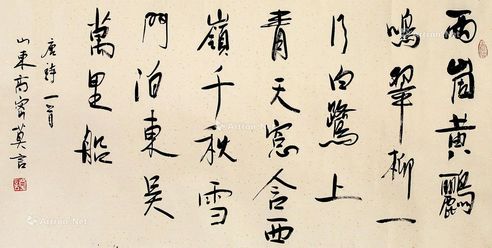 兩箇黃鸝
鳴翠柳一
行白鷺上
青天窓含西
嶺千秋雪
門泊東吳
萬里船
唐詩一首
山東高密莫言